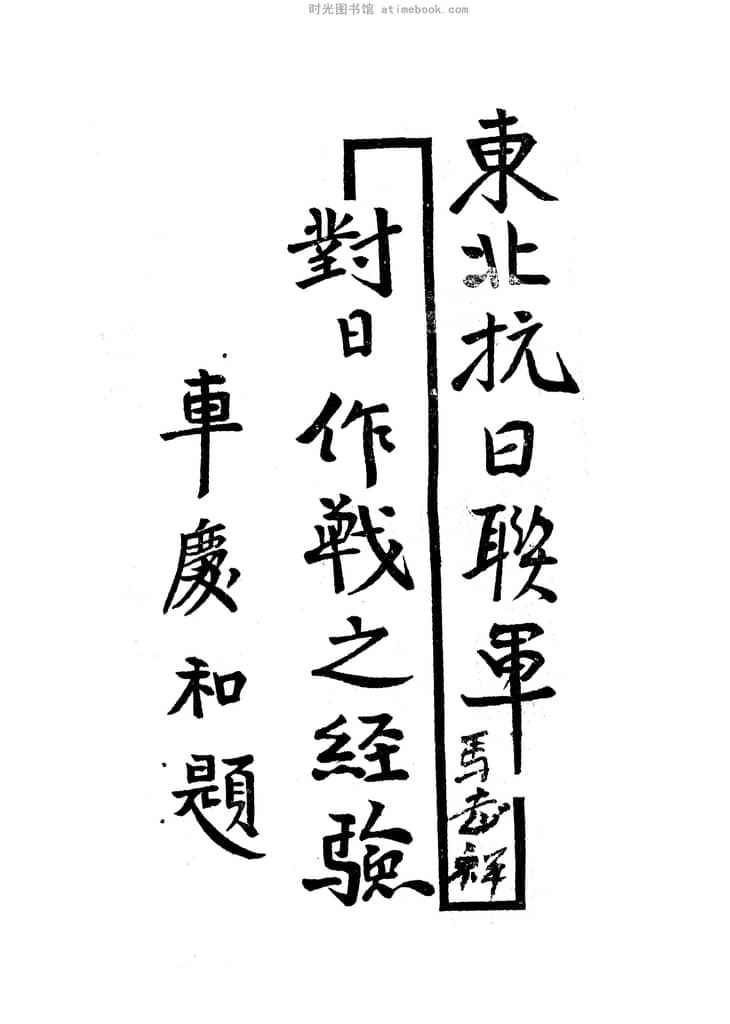 时光图书馆 atimebook.com
東北抗日聯軍
對日作戰之経験
車慶和題